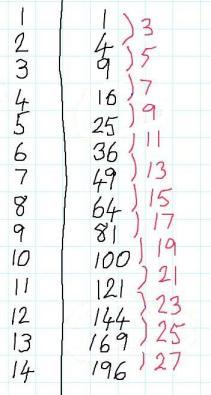 1 1
3
2 4
5
3 9
7
4 16
9
5 25
11
6 36
13
7 49
15
8 64
17
9 81
19
10 100
21
11 121
23
12 144
25
13 169
27
14 196